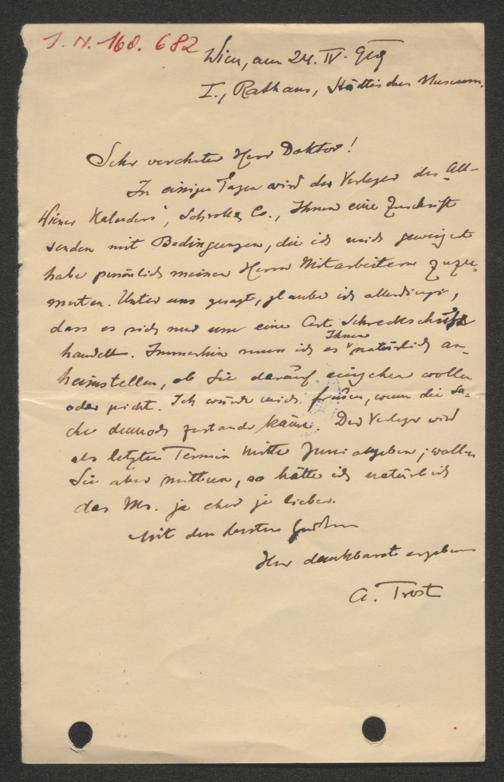 J. N. 168.682
Wien, am 24. IV. 919
I., Rathaus, Städtisches Museum.
Sehr verehrter Herr Doktor!
In einigen Tagen wird der Verleger des "Alt-
Wiener Kalenders", Schroll & Co., Ihnen eine Zuschrift
senden mit Bedingungen, die ich mich geweigert
habe persönlich meinen Herrn Mitarbeitern zuzu-
muten. Unter uns gesagt, glaube ich allerdings,
dass es sich nur um eine Art Schreckschrift
handelt. Immerhin muss ich es Ihnen natürlich an-
heimstellen, ob Sie darauf eingehen wollen
oder nicht. Ich würde mich freuen, wenn die Sa-
che dennoch zustande käme. Der Verleger wird
als letzten Termin Mitte Juni angeben; wollen
Sie aber mittun, so hätte ich natürlich
das Ms. je eher je lieber.
Mit den besten Grüßen
Ihr dankbarst ergebener
A. Trost